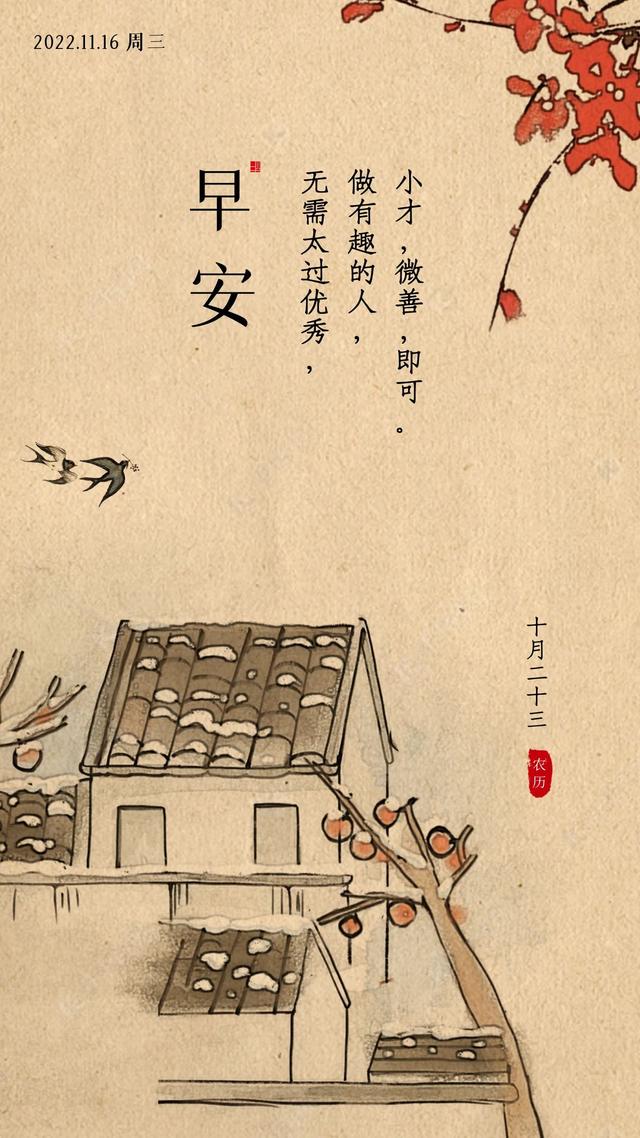 2022.11.16 周三
早安
无需太过优秀，
做有趣的人，
小才，微善，即可。
十月二十三
农历